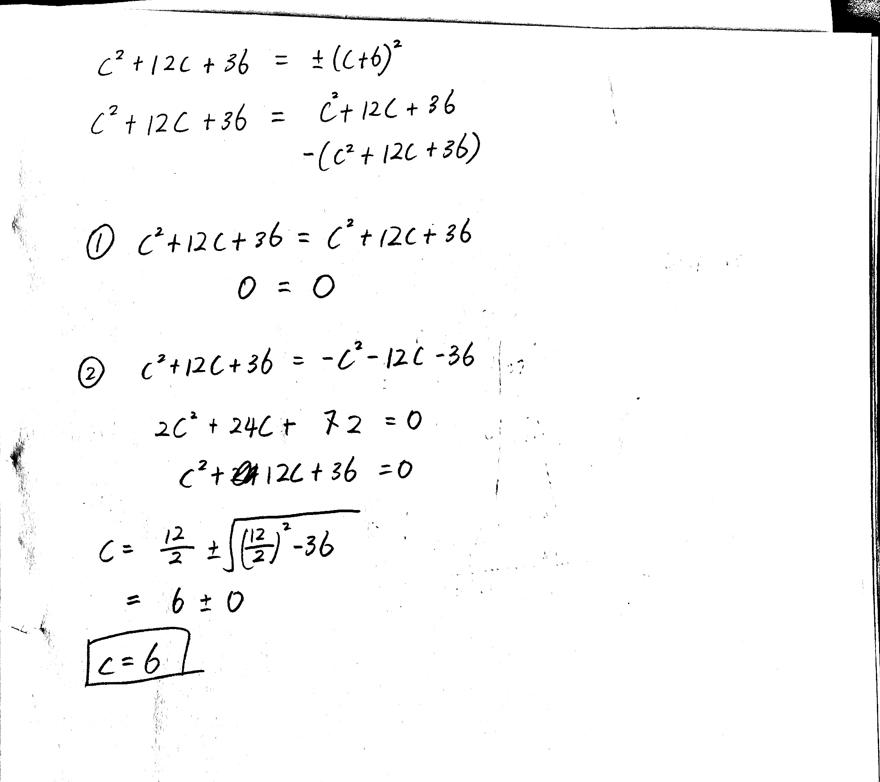 c² + 12c + 36 = ± (c+6)²
c² + 12c + 36 = c² + 12c + 36
-(c² + 12c + 36)
① c² + 12c + 36 = c² + 12c + 36
0 = 0
② c² + 12c + 36 = -c² - 12c - 36
2c² + 24c + 72 = 0
c² + 12c + 36 = 0
c = 12/2 ± √((12/2)² - 36)
= 6 ± 0
c = 6